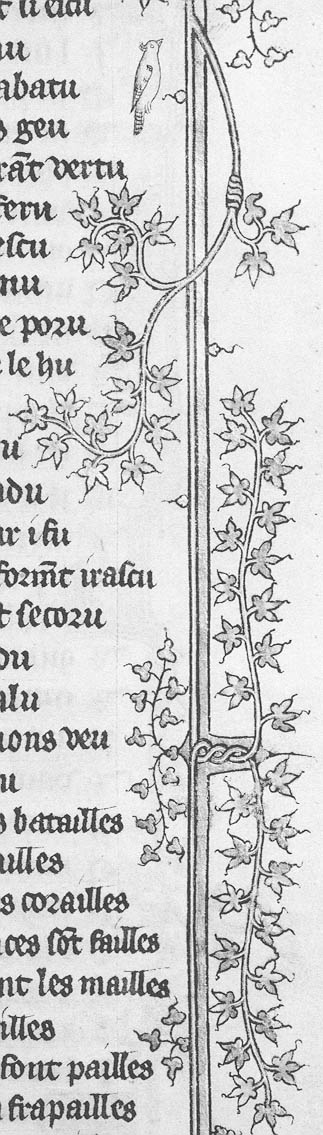 abatu
geu
rāt vertu
feru
escu
nu
e poru
le hu
u
adu
ar i fu
formt irascu
t secoru
du
alu
ions veu
u
s batailles
ailles
s corailles
ces sōt failles
nt les mailles
illes
font pailles
frapailles